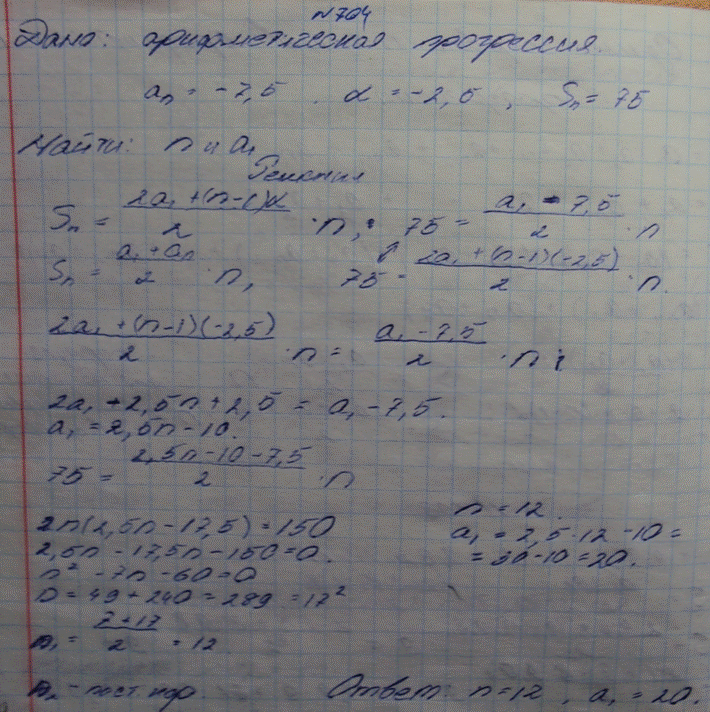 N704
Дано: арифметическая прогрессия.
aₙ = -7,5 . d = -2,5 , Sₙ = 75
Найти: n и a₁
Решение
Sₙ = (2a₁ + (n-1)d)/2 · n ; 75 = (a₁ - 7,5)/2 · n
Sₙ = (a₁ + aₙ)/2 · n, 75 = (2a₁ + (n-1)(-2,5))/2 · n.
(2a₁ + (n-1)(-2,5))/2 · n = (a₁ - 7,5)/2 · n ;
2a₁ - 2,5n + 2,5 = a₁ - 7,5.
a₁ = 2,5n - 10.
75 = (2,5n - 10 - 7,5)/2 · n
n(2,5n - 17,5) = 150
2,5n - 17,5n - 150 = 0.
n² - 7n - 60 = 0
D = 49 + 240 = 289 = 17²
n₁ = (7 + 17)/2 = 12
n₂ - пост. кор.
n = 12.
a₁ = 2,5 · 12 - 10 =
= 30 - 10 = 20.
Ответ: n = 12 , a₁ = 20.